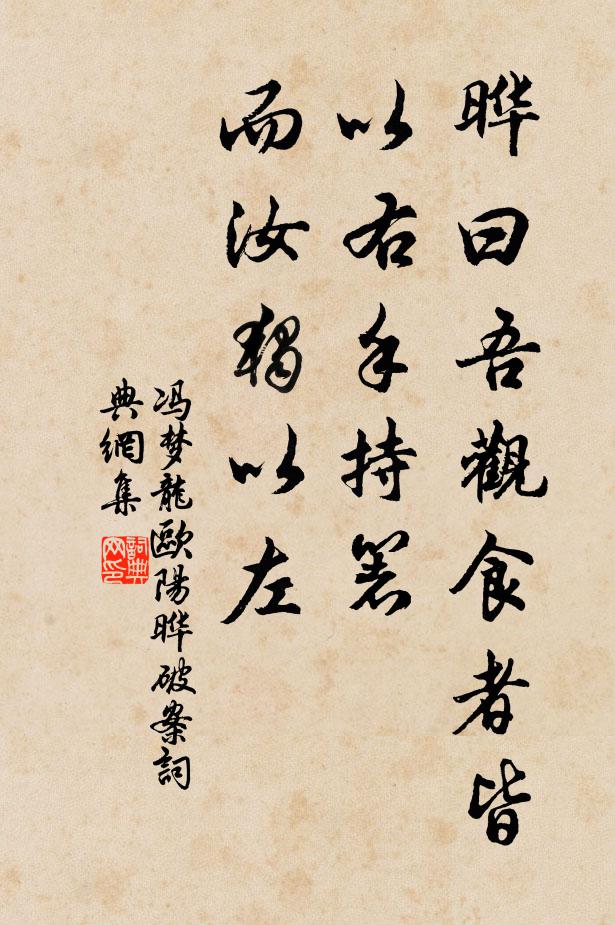 晔曰吾觀食者皆
以右手持箸
而汝獨以左
冯梦龍歐陽晔破案詞
典網集
詞典
网印